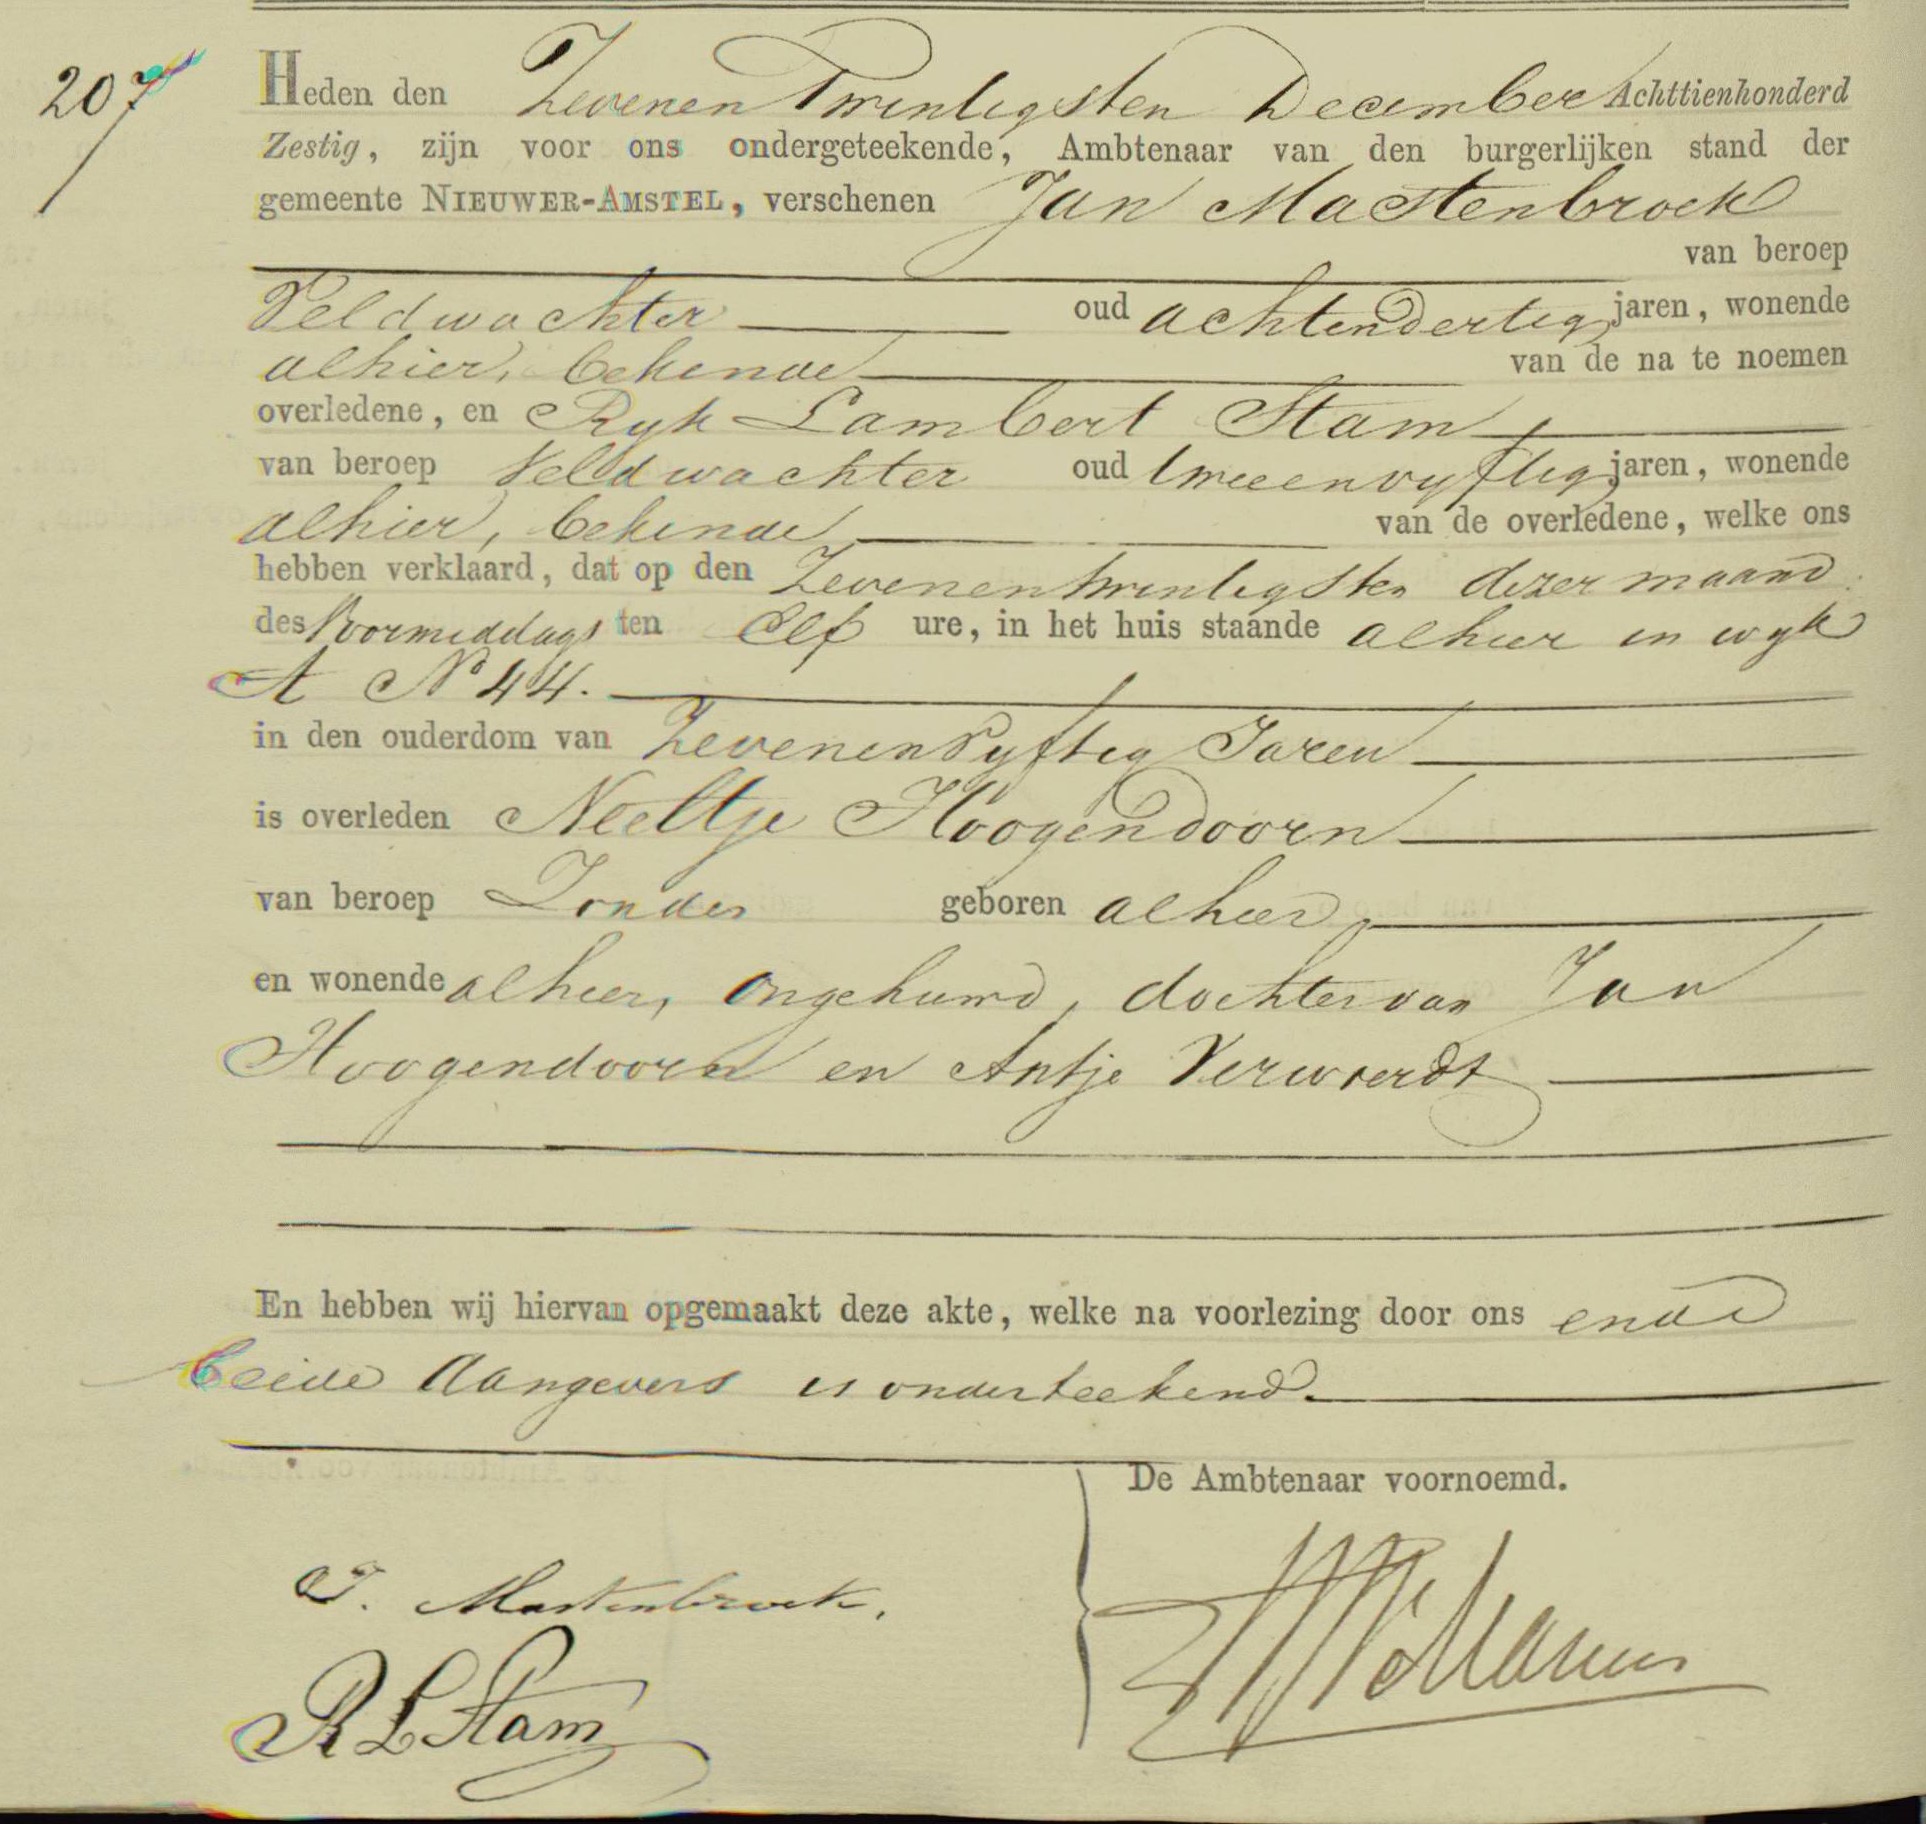 207
Heden den Zevenen Twintigsten December Achttienhonderd
Zestig, zijn voor ons ondergeteekende, Ambtenaar van den burgerlijken stand der
gemeente NIEUWER-AMSTEL, verschenen Jan Mastenbroek
van beroep
Veldwachter oud achtendertig jaren, wonende
alhier, bekende van de na te noemen
overledene, en Ryk Lambert Stam,
van beroep Veldwachter oud tweeenvyftig jaren, wonende
alhier, bekende van de overledene, welke ons
hebben verklaard, dat op den Zevenentwintigsten dezer maand
des Voormiddags ten Elf ure, in het huis staande alhier in wyk
A No 44.
in den ouderdom van Zevenenvyftig Jaren
is overleden Neeltje Hoogendoorn
van beroep Zonder geboren alhier,
en wonende alhier, ongehuwd, dochter van Jan
Hoogendoorn en Antje Verwoerdt
En hebben wij hiervan opgemaakt deze akte, welke na voorlezing door ons ende
beide Aangevers is onderteekend.
De Ambtenaar voornoemd.
J. Mastenbroek.
R L Stam